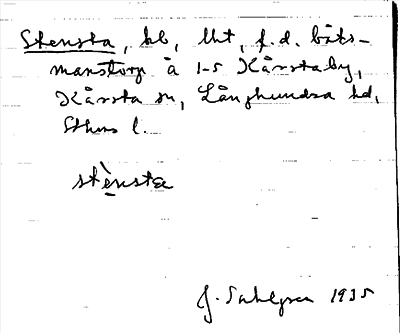 Stensta, hb, lht, f.d. båts-
manstorp å 1-5 Kårsta by,
Kårsta sn, Långhundra hd,
Sthms l.
stènsta
J. Sahlgren 1935